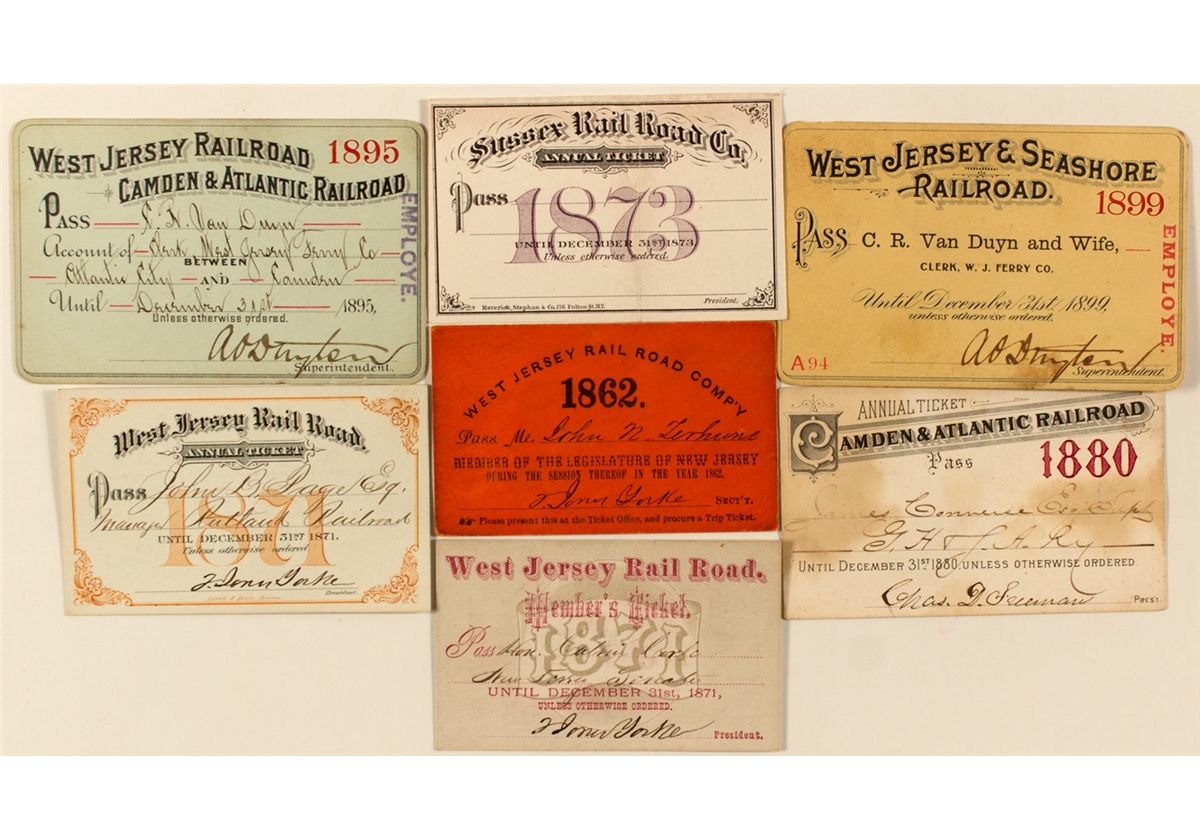 WEST JERSEY RAILROAD 1895
CAMDEN & ATLANTIC RAILROAD
PASS Van Duyn
Account of Clerk West Jersey Ferry Co
BETWEEN
Atlantic City AND Camden
Until December 31st 1895,
Unless otherwise ordered.
A O Dayton
Superintendent.
EMPLOYE.
Sussex Rail Road Co.
ANNUAL TICKET
Pass 1873
UNTIL DECEMBER 31ST 1873
Unless otherwise ordered.
Maverick, Stephan & Co. 176 Fulton St. N.Y. President.
WEST JERSEY & SEASHORE
RAILROAD.
1899
PASS C. R. Van Duyn and Wife,
CLERK, W. J. FERRY CO.
Until December 31st 1899,
unless otherwise ordered.
A O Dayton
A 94 Superintendent.
EMPLOYE.
West Jersey Rail Road.
ANNUAL TICKET
Pass John B. Page Esq.
Manager Rutland Railroad
1871
UNTIL DECEMBER 31ST 1871.
Unless otherwise ordered
Jones Yorke
President.
WEST JERSEY RAIL ROAD COMP'Y
1862.
Pass Mr. John N. Terhune
MEMBER OF THE LEGISLATURE OF NEW JERSEY
DURING THE SESSION THEREOF IN THE YEAR 1862.
Jones Yorke SECT'Y.
Please present this at the Ticket Office, and procure a Trip Ticket.
ANNUAL TICKET
CAMDEN & ATLANTIC RAILROAD
Pass 1880
James Converse
UNTIL DECEMBER 31ST 1880, UNLESS OTHERWISE ORDERED.
Chas. D. Freeman
PRES'T.
West Jersey Rail Road.
Member's Ticket.
1871
Pass Hon.
New Jersey Senate
UNTIL DECEMBER 31st, 1871,
UNLESS OTHERWISE ORDERED.
Jones Yorke President.